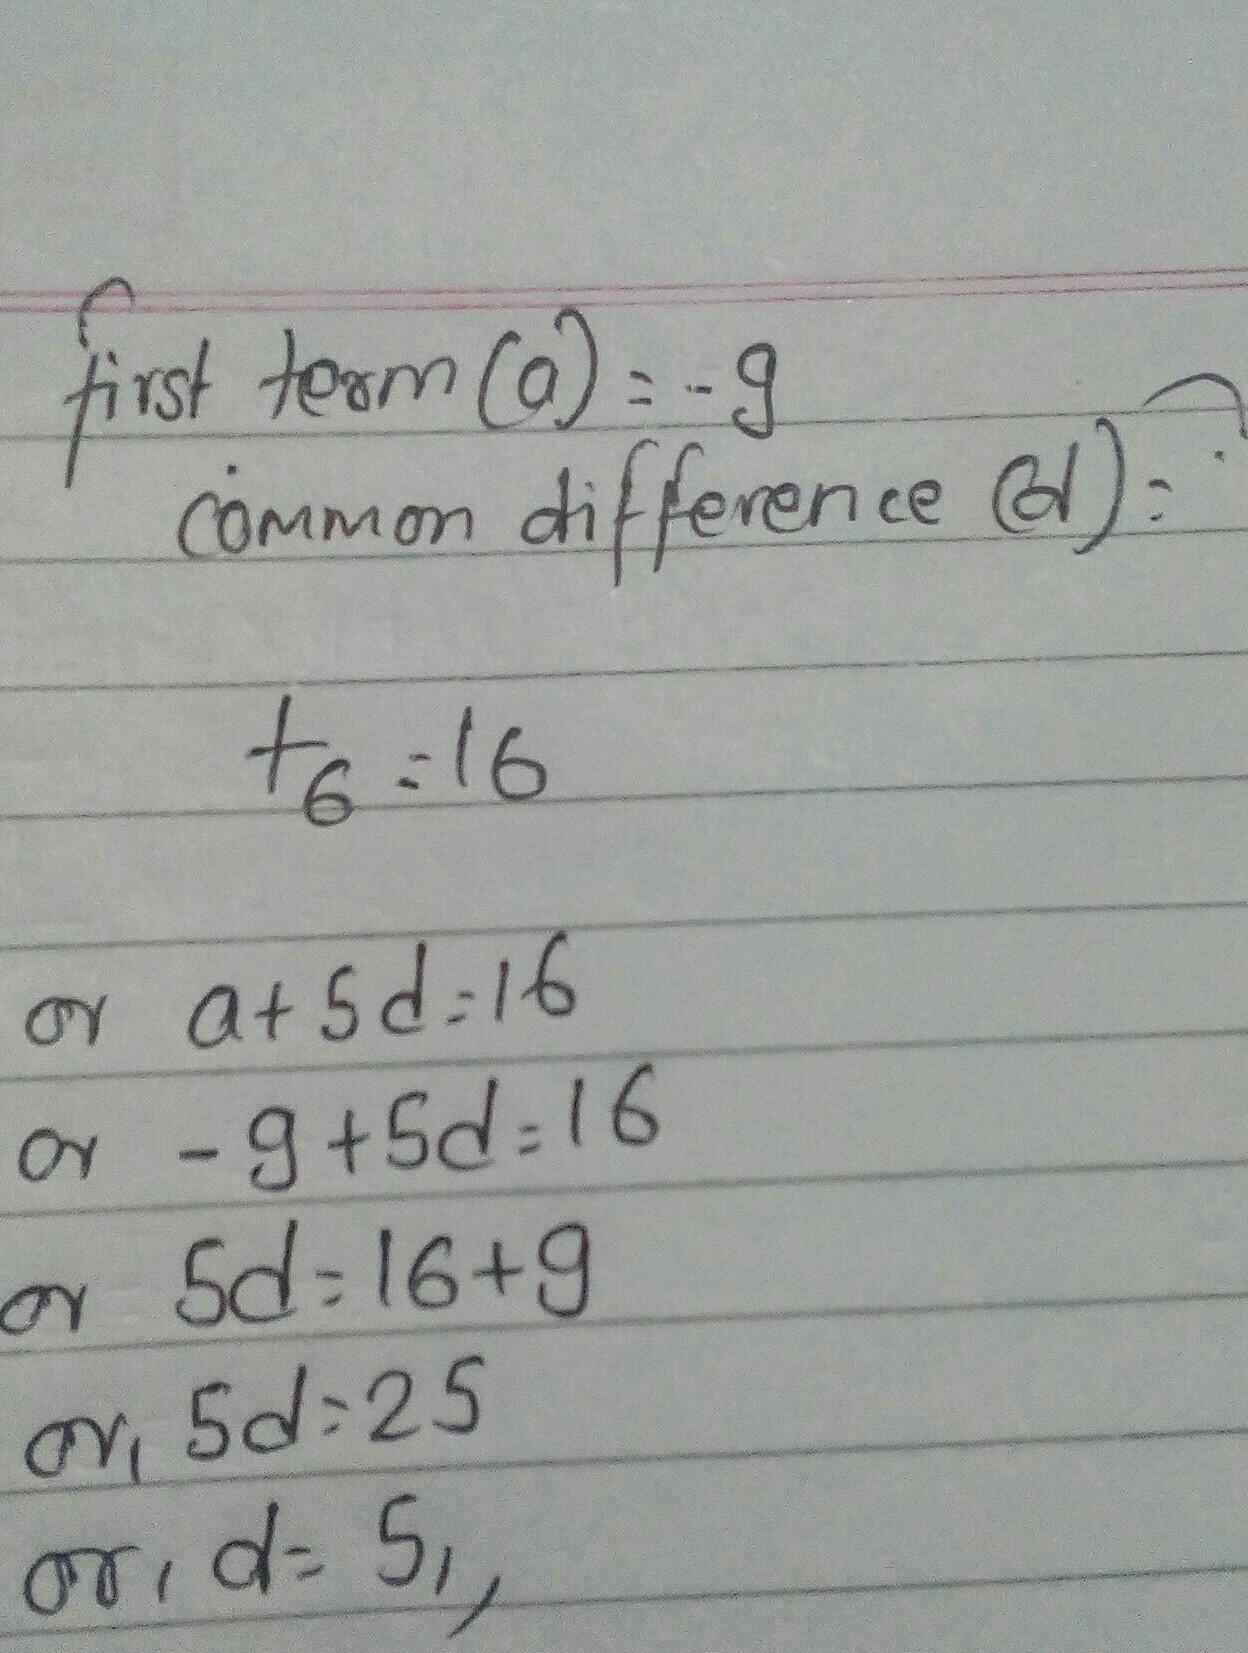 first term (a) = -9
common difference (d) = ?
t₆ = 16
or a + 5d = 16
or -9 + 5d = 16
or 5d = 16 + 9
or, 5d = 25
or, d = 5,,